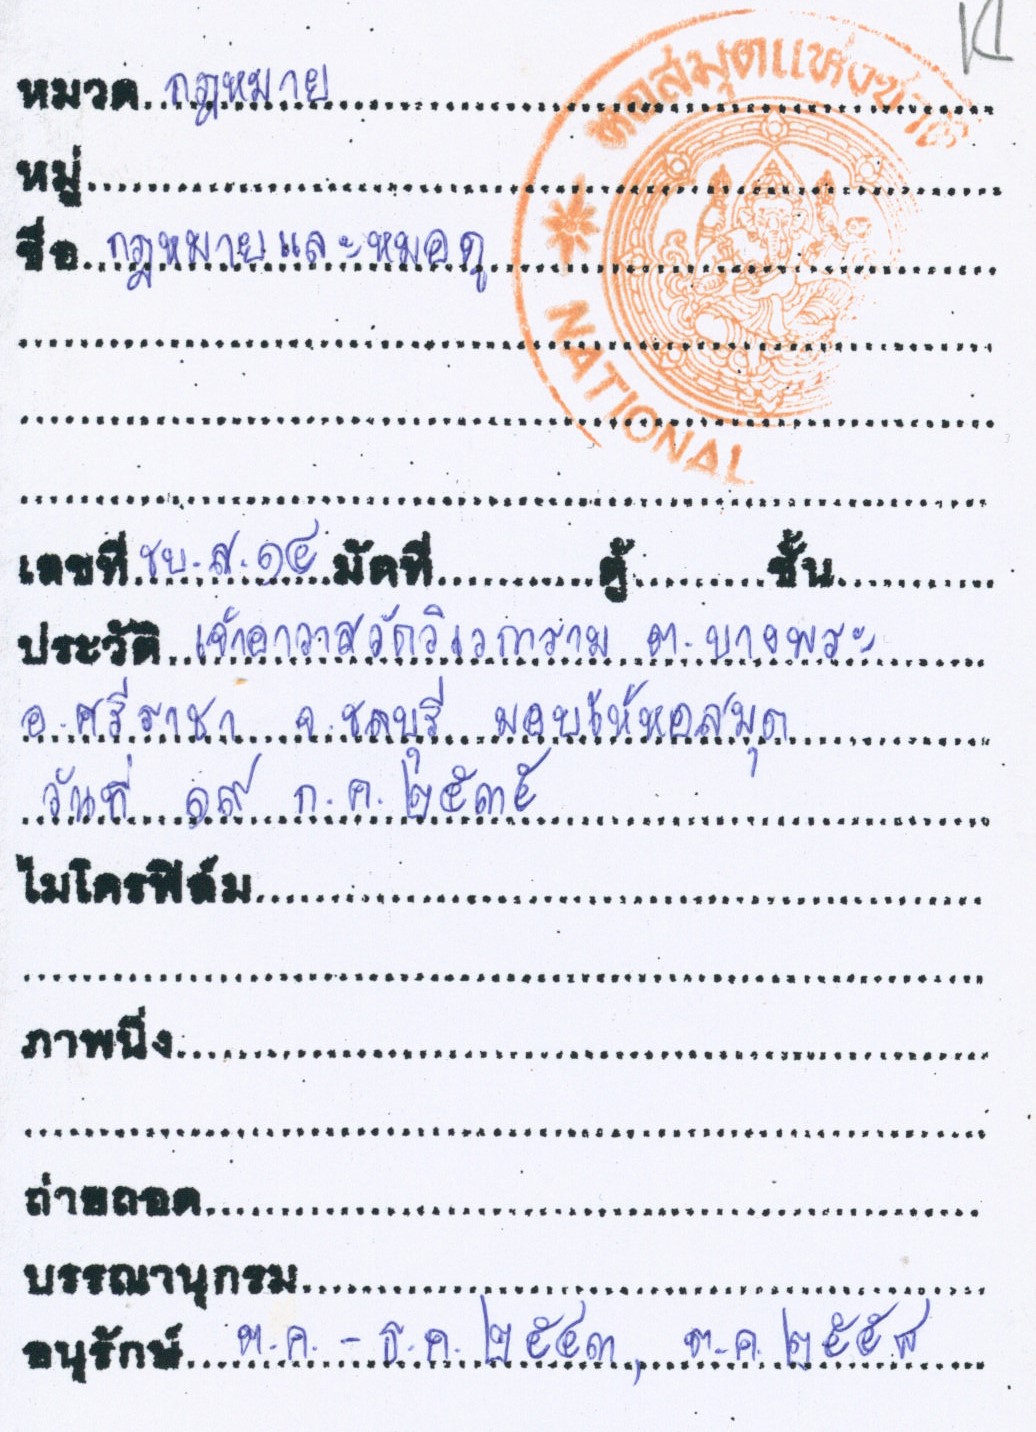 หอสมุดแห่งชาติ
NATIONAL
หมวด กฎหมาย
หมู่
ชื่อ กฎหมายและหมอดู
เลขที่ ชบ.ส.๑๔ มัดที่ ตู้ ชั้น
ประวัติ เจ้าอาวาสวัดวิเวการาม ต.บางพระ
อ.ศรีราชา จ.ชลบุรี มอบให้หอสมุด
วันที่ ๑๙ ก.ค. ๒๕๓๕
ไมโครฟิล์ม
ภาพนิ่ง
ถ่ายถอด
บรรณานุกรม
อนุรักษ์ ต.ค. - ธ.ค. ๒๕๔๓, ต.ค. ๒๕๕๘